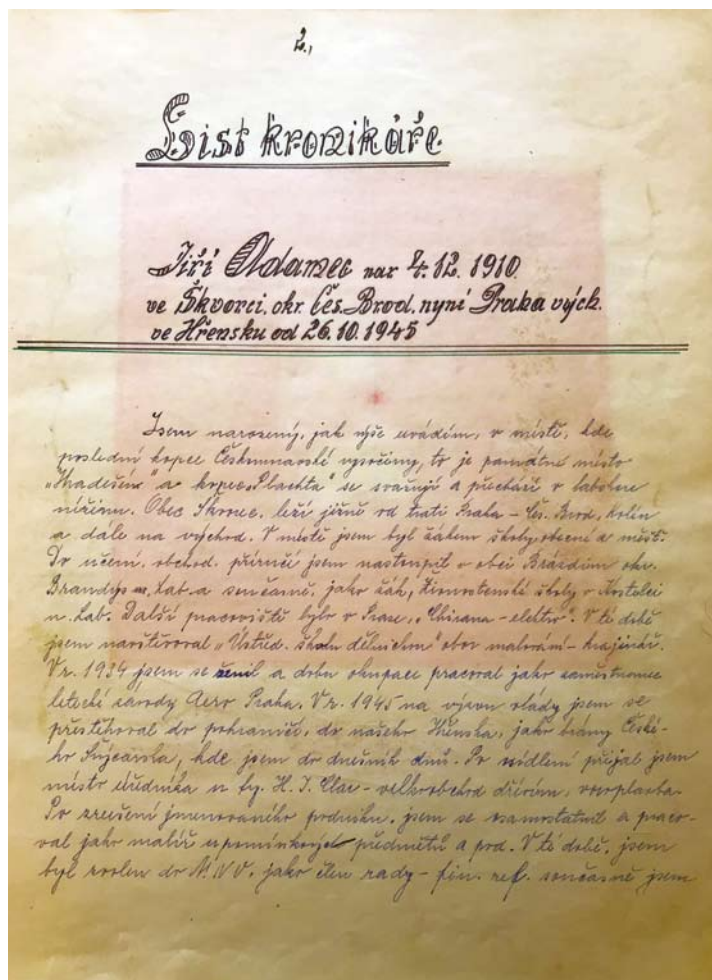 2.,
List kronikáře.
Jiří Adamec nar 4. 12. 1910.
ve Škvorci, okr. Čes. Brod, nyní Praha vých.
ve Hřensku od 26. 10. 1945
Jsem narozený, jak výše uvádím, v místě, kde
poslední kopce Českomoravské vysočiny, to je památné místo
a kopec „Plachta" se svažují a přechází v labskou
nížinu. Obec Škvorec, leží jižně od trati Praha - Čes. Brod, Kolín
a dále na východ. V místě jsem byl žákem školy obecné a měšť.
Do učení, obchod. příručí jsem nastoupil v obci Brázdim okr.
Brandýs n. Lab. a současně, jako žák, živnostenské školy v Kostelci
n. Lab. Další pracoviště bylo v Praze, „Chirana - elektro". V té době
jsem navštěvoval „Ústřed. školu dělnickou" obor malování - krajinář.
V r. 1934 jsem se ženil a dobu okupace pracoval jako zaměstnanec
letecké závody Aero Praha. V r. 1945 na výzvu vlády jsem se
přestěhoval do pohraničí, do našeho Hřenska, jako brány České-
ho Švýcarska, kde jsem do dnešních dnů. Po sídlení přijal jsem
místo úředníka u fy. H. J. - velkoobchod dřívím, voroplavba.
Po zrušení jmenovaného podniku, jsem se osamostatnil a praco-
val jako malíř upomínkových předmětů a pod. V té době, jsem
byl zvolen do M.N.V. jako člen rady - fin. ref. současně jsem